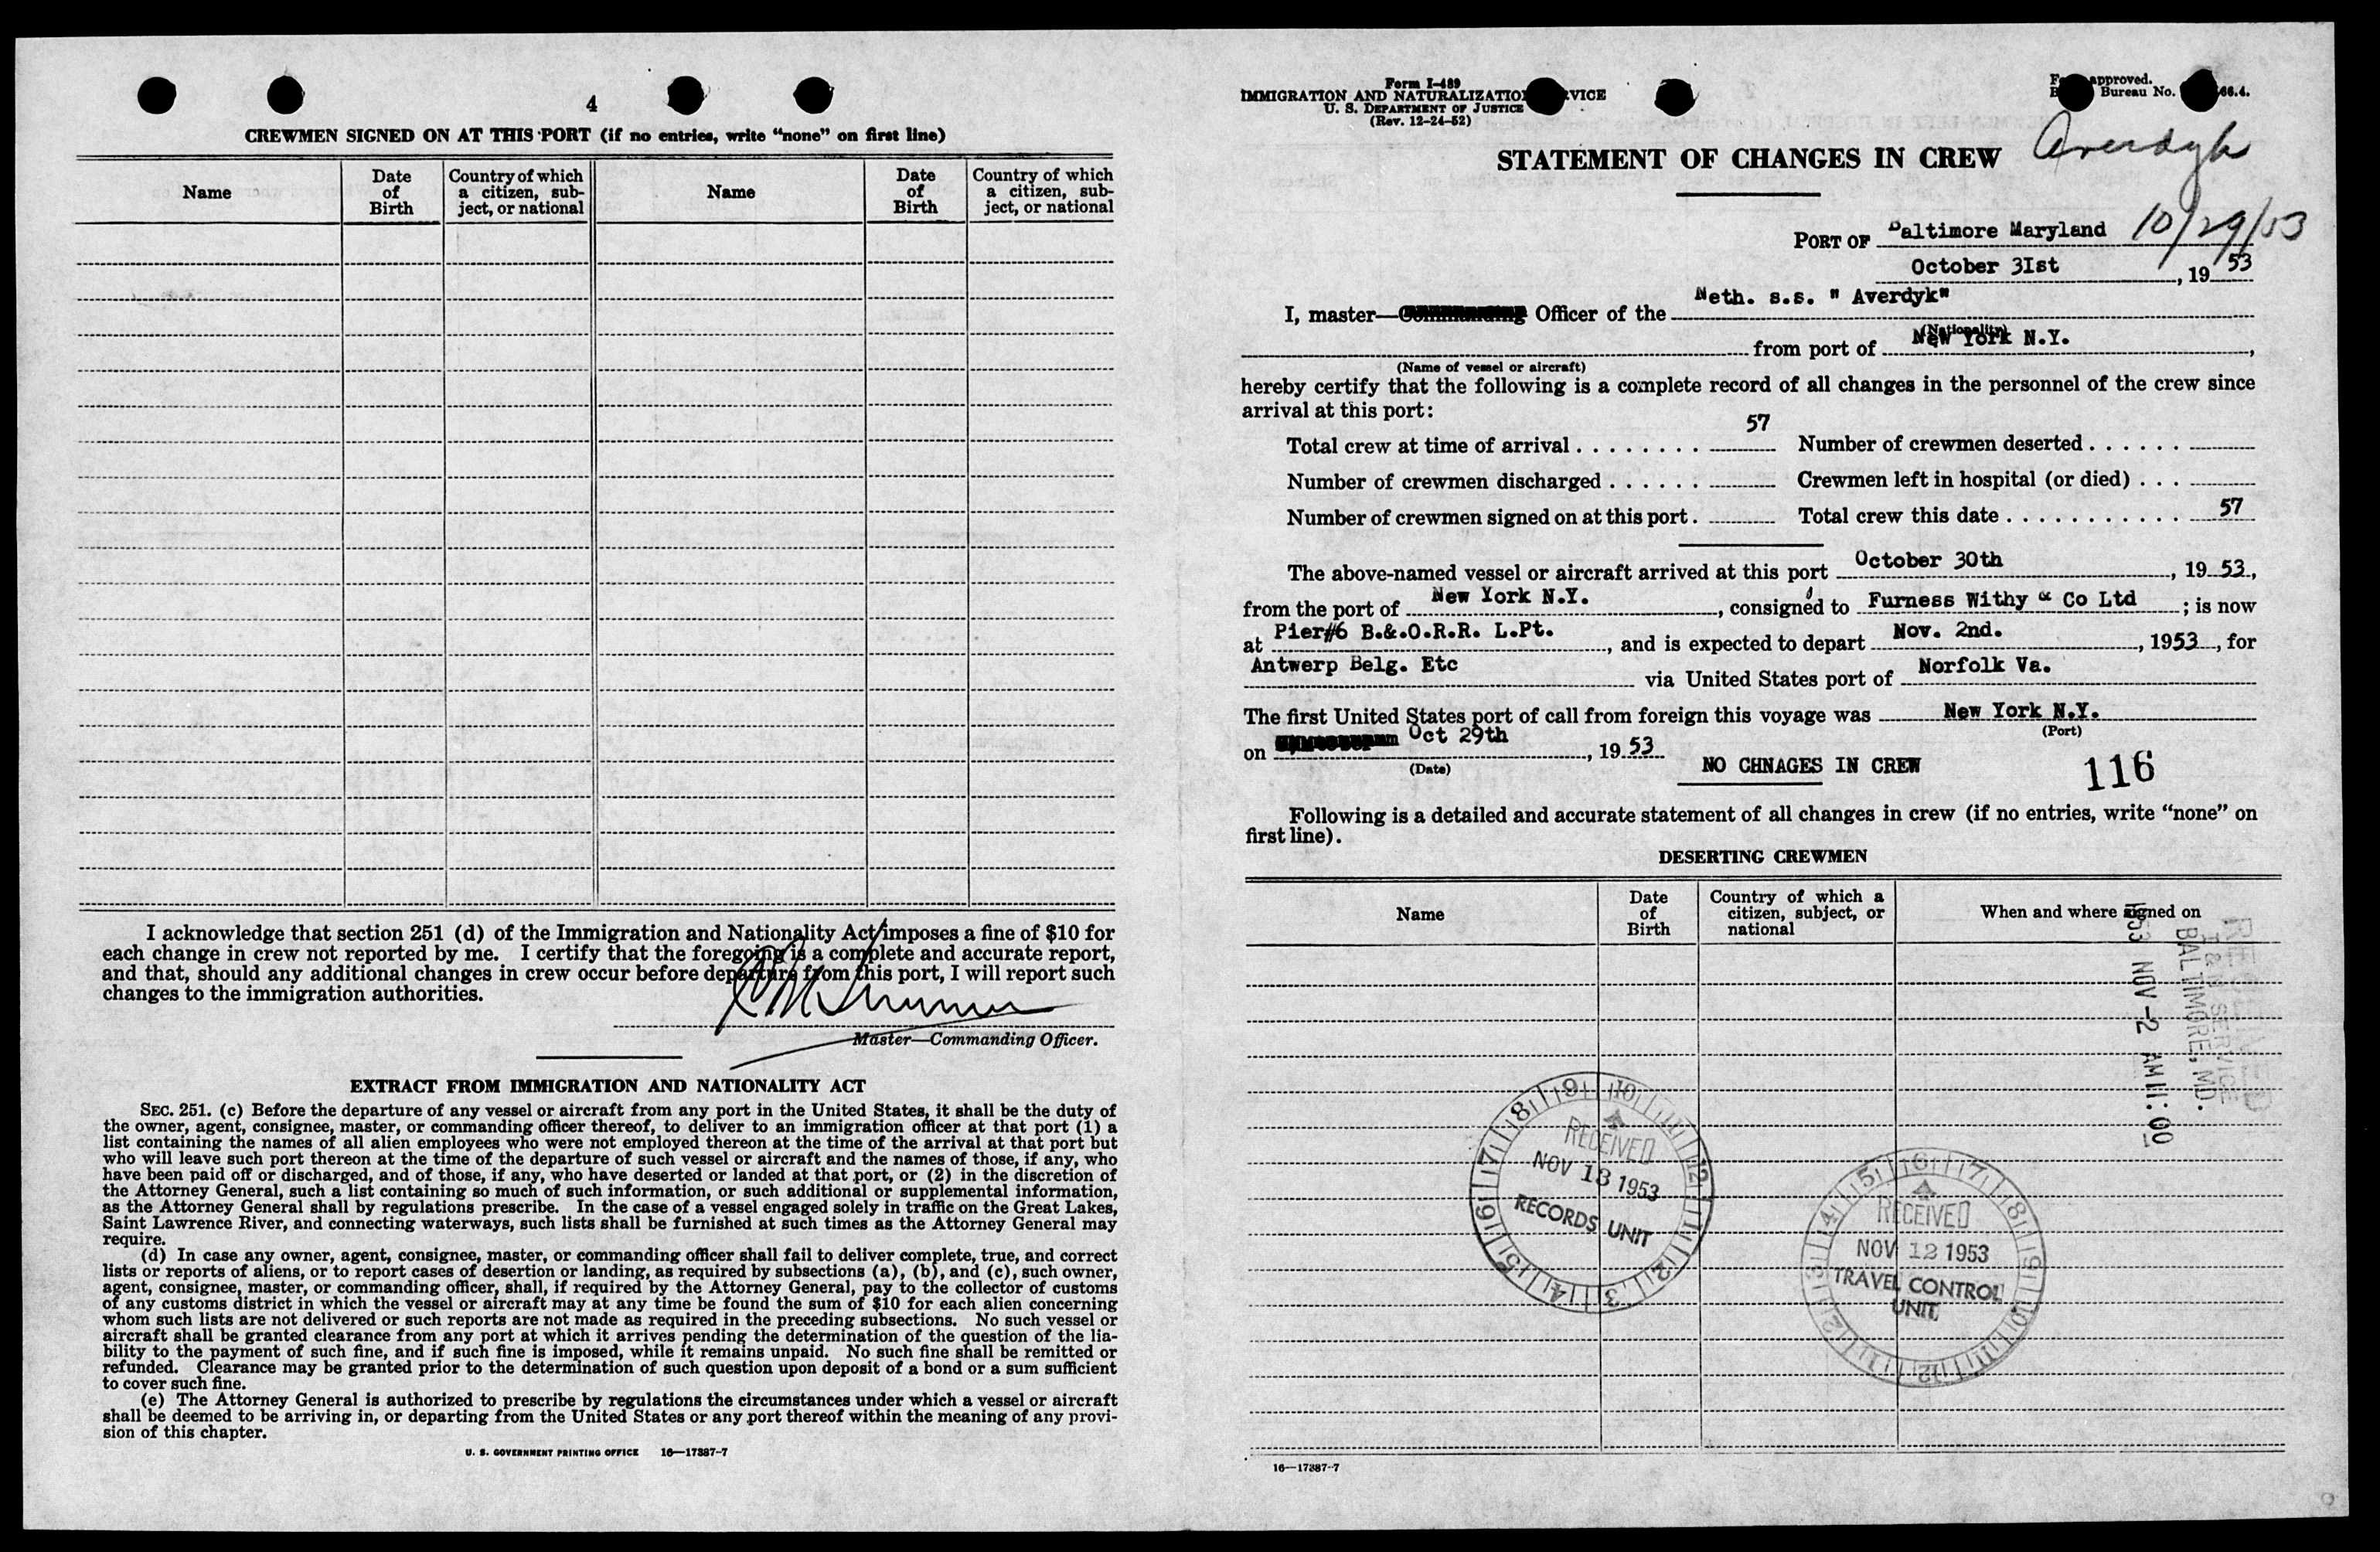 4
CREWMEN SIGNED ON AT THIS PORT (if no entries, write "none" on first line)
Name
Date of Birth
Country of which a citizen, subject, or national
Name
Date of Birth
Country of which a citizen, subject, or national
I acknowledge that section 251 (d) of the Immigration and Nationality Act imposes a fine of $10 for
each change in crew not reported by me. I certify that the foregoing is a complete and accurate report,
and that, should any additional changes in crew occur before departure from this port, I will report such
changes to the immigration authorities.
Master—Commanding Officer.
EXTRACT FROM IMMIGRATION AND NATIONALITY ACT
SEC. 251. (c) Before the departure of any vessel or aircraft from any port in the United States, it shall be the duty of
the owner, agent, consignee, master, or commanding officer thereof, to deliver to an immigration officer at that port (1) a
list containing the names of all alien employees who were not employed thereon at the time of the arrival at that port but
who will leave such port thereon at the time of the departure of such vessel or aircraft and the names of those, if any, who
have been paid off or discharged, and of those, if any, who have deserted or landed at that port, or (2) in the discretion of
the Attorney General, such a list containing so much of such information, or such additional or supplemental information,
as the Attorney General shall by regulations prescribe. In the case of a vessel engaged solely in traffic on the Great Lakes,
Saint Lawrence River, and connecting waterways, such lists shall be furnished at such times as the Attorney General may
require.
(d) In case any owner, agent, consignee, master, or commanding officer shall fail to deliver complete, true, and correct
lists or reports of aliens, or to report cases of desertion or landing, as required by subsections (a), (b), and (c), such owner,
agent, consignee, master, or commanding officer, shall, if required by the Attorney General, pay to the collector of customs
of any customs district in which the vessel or aircraft may at any time be found the sum of $10 for each alien concerning
whom such lists are not delivered or such reports are not made as required in the preceding subsections. No such vessel or
aircraft shall be granted clearance from any port at which it arrives pending the determination of the question of the lia-
bility to the payment of such fine, and if such fine is imposed, while it remains unpaid. No such fine shall be remitted or
refunded. Clearance may be granted prior to the determination of such question upon deposit of a bond or a sum sufficient
to cover such fine.
(e) The Attorney General is authorized to prescribe by regulations the circumstances under which a vessel or aircraft
shall be deemed to be arriving in, or departing from the United States or any port thereof within the meaning of any provi-
sion of this chapter.
U. S. GOVERNMENT PRINTING OFFICE 16—17387-7
Form I-489
IMMIGRATION AND NATURALIZATIO RVICE
U. S. DEPARTMENT OF JUSTICE
(Rev. 12-24-52)
approved.
Bureau No. 66.4.
Averdyk
STATEMENT OF CHANGES IN CREW
PORT OF Baltimore Maryland 10/29/53
October 3Ist, 19 53
I, master— Officer of the Neth. s.s. " Averdyk"
(Nationality)
from port of New York N.Y.,
(Name of vessel or aircraft)
hereby certify that the following is a complete record of all changes in the personnel of the crew since
arrival at this port:
Total crew at time of arrival 57 Number of crewmen deserted
Number of crewmen discharged Crewmen left in hospital (or died)
Number of crewmen signed on at this port. Total crew this date 57
The above-named vessel or aircraft arrived at this port October 30th, 19 53,
from the port of New York N.Y., consigned to Furness Withy & Co Ltd; is now
at Pier#6 B.&.O.R.R. L.Pt., and is expected to depart Nov. 2nd., 1953, for
Antwerp Belg. Etc via United States port of Norfolk Va.
The first United States port of call from foreign this voyage was New York N.Y.
(Port)
on Oct 29th, 19 53
(Date)
NO CHNAGES IN CREW
116
Following is a detailed and accurate statement of all changes in crew (if no entries, write "none" on
first line).
DESERTING CREWMEN
Name
Date of Birth
Country of which a citizen, subject, or national
When and where signed on
RECEIVED
I & N SERVICE
BALTIMORE, MD.
1953 NOV -2 AM 11:00
9 10 11 12 1 2 3 4 5 6 7 8
RECEIVED
NOV 13 1953
RECORDS UNIT
6 7 8 9 10 11 12 1 2 3 4 5
RECEIVED
NOV 12 1953
TRAVEL CONTROL
UNIT
16—17387-7